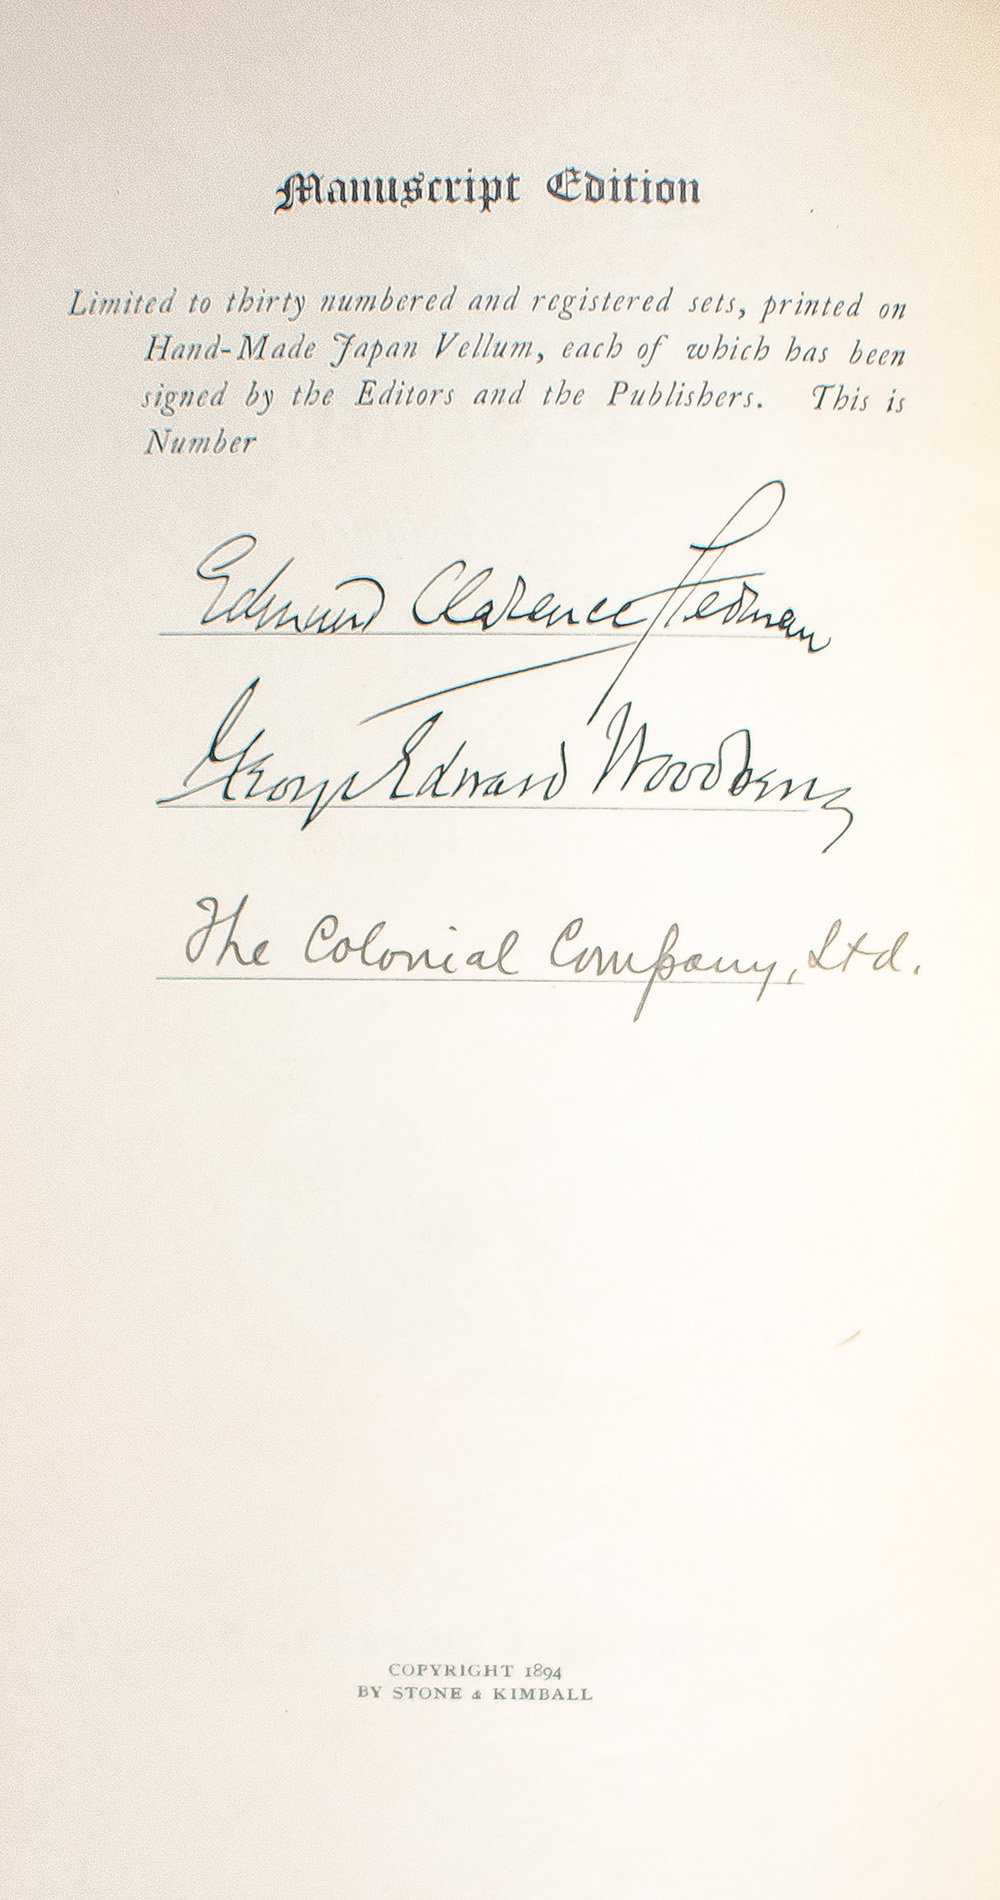 Manuscript Edition
Limited to thirty numbered and registered sets, printed on
Hand-Made Japan Vellum, each of which has been
signed by the Editors and the Publishers. This is
Number
Edmund Clarence Stedman
George Edward Woodberry
The Colonial Company, Ltd.
COPYRIGHT 1894
BY STONE & KIMBALL